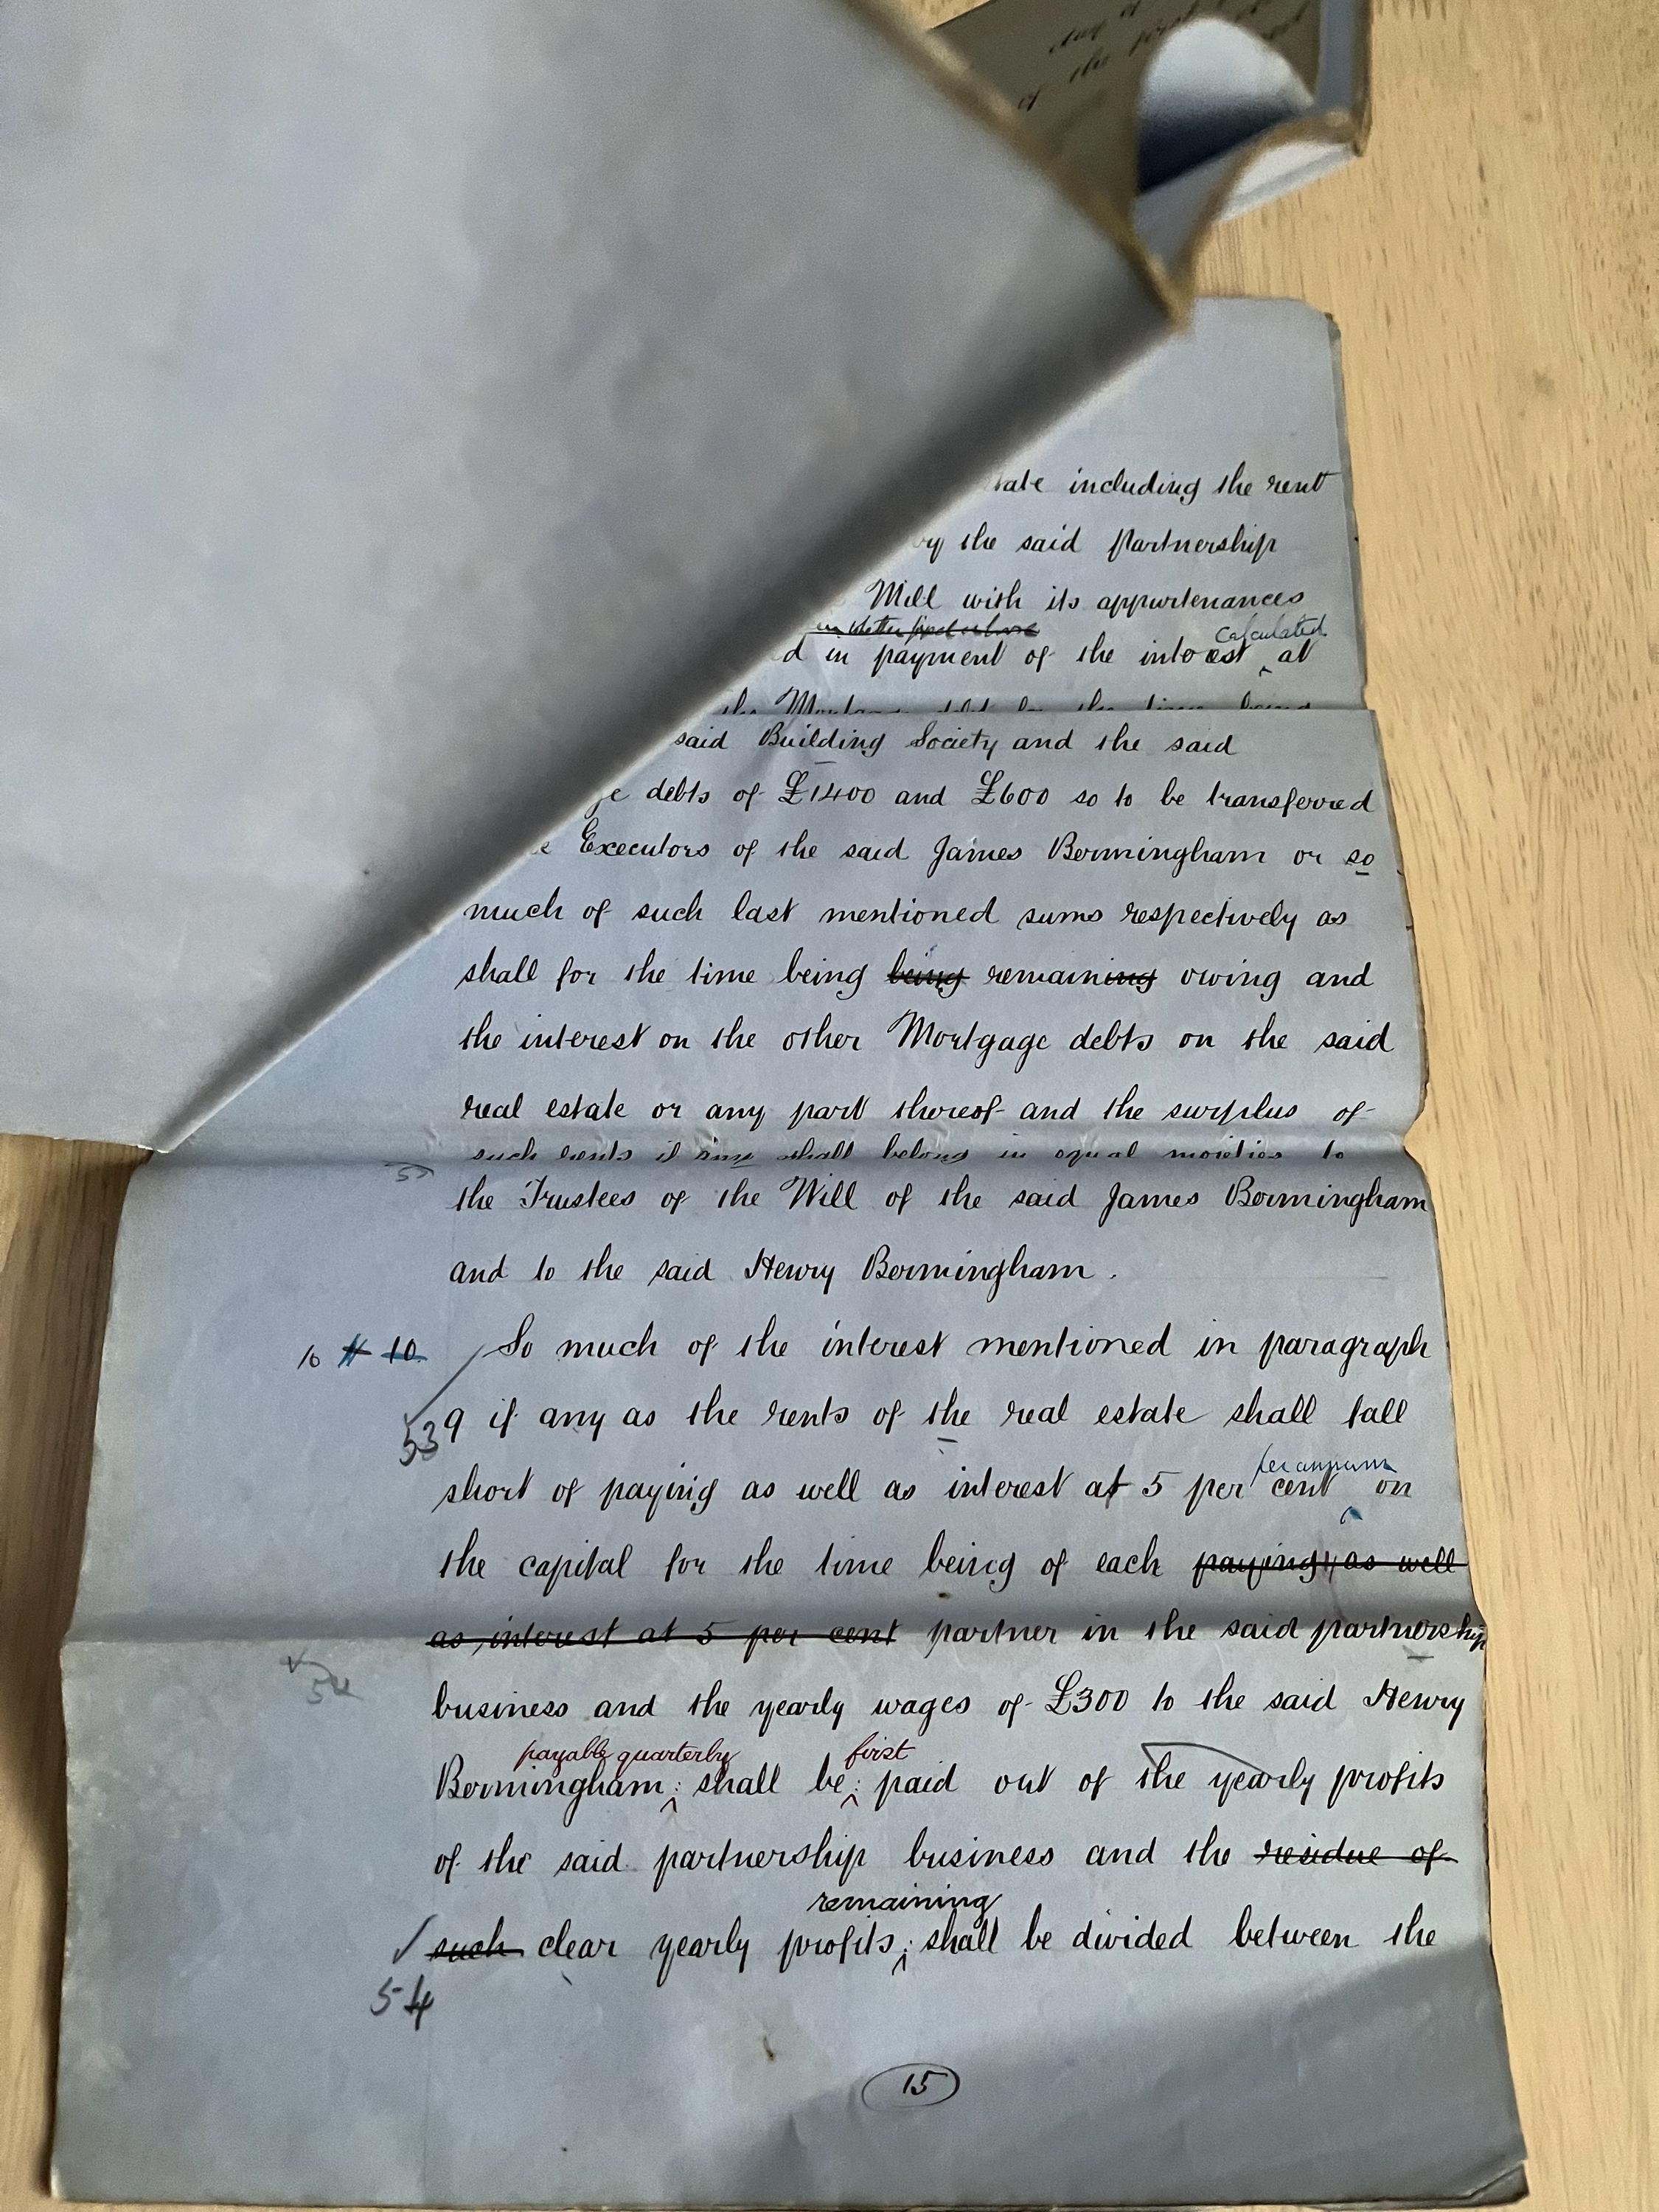 of the first
including the rent
by the said Partnership
Mill with its appurtenances
calculated
in payment of the interest at
the Mortgage debt for the time being
said Building Society and the said
debts of £1400 and £600 so to be transferred
Executors of the said James Bermingham or so
much of such last mentioned sums respectively as
shall for the time being being remaining owing and
the interest on the other Mortgage debts on the said
real estate or any part thereof and the surplus of
such rents if any shall belong in equal moieties to
the Trustees of the Will of the said James Bermingham
and to the said Henry Bermingham.
10 10 So much of the interest mentioned in paragraph
53 9 if any as the rents of the real estate shall fall
per annum
short of paying as well as interest at 5 per cent on
the capital for the time being of each paying as well
as interest at 5 per cent partner in the said partnership
54
business and the yearly wages of £300 to the said Henry
payable quarterly first
Bermingham shall be paid out of the yearly profits
of the said partnership business and the residue of
remaining
such clear yearly profits shall be divided between the
54
15